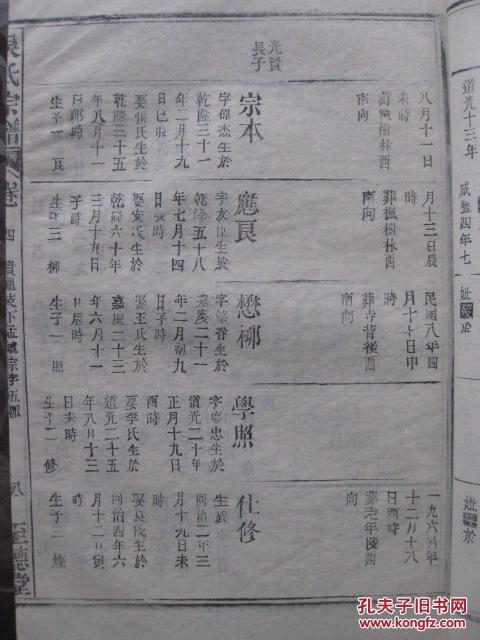 道光十三年
咸豐四年七
妣
於
妣
於
光賢
長子
八月十一日
未時
葬楓樹林酉
南向
宗本
字偉杰生於
乾隆三十一
年二月十九
日巳時
娶張氏生於
乾隆三十五
年八月十一
日卯時
生子一 良
月十三日辰
時
葬楓樹林酉
南向
應良
字友
生於
乾隆五十八
年七月十四
日辰時
娶安氏生於
乾隆六十年
三月十九日
子時
生子三 柳
民國八年四
月十七日申
時
葬寺背後酉
南向
懋柳
生於
嘉慶二十一
年二月初九
日子時
娶王氏生於
嘉慶二十三
年六月十一
日辰時
生子一 照
學照
生於
道光二十年
正月十九日
酉時
娶李氏生於
道光二十五
年八月十三
日未時
修
一九六
年
十二月十八
日酉時
葬老年陵酉
向
仕修
生於
同治二年三
月十九日未
時
氏生於
同治四年六
月十二日寅
時
生子三 燦
吳氏宗譜
卷
四
宗字五派
八
至德堂
孔夫子旧书网
www.kongfz.com